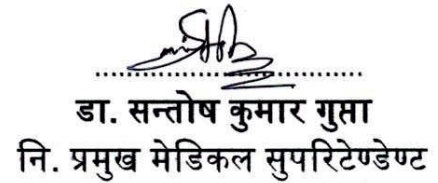 डा. सन्तोष कुमार गुप्ता
नि. प्रमुख मेडिकल सुपरिटेण्डेण्ट